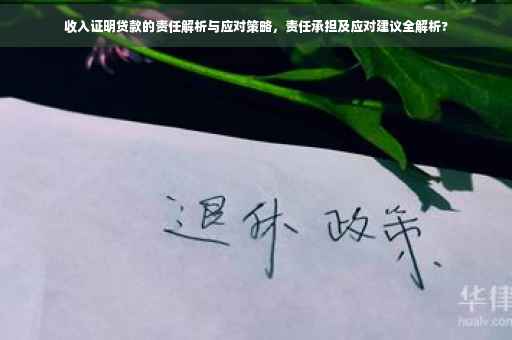 收入证明贷款的责任解析与应对策略，责任承担及应对建议全解析？
退休 政策
华律
hualv.com